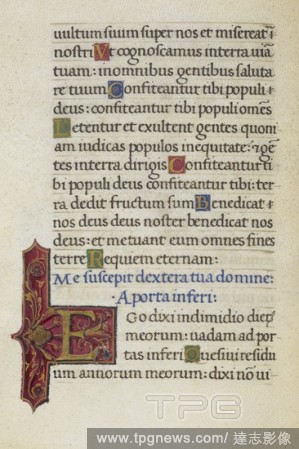 uultum suum super nos et misereat̄
nostri Vt cognoscamus interra uiā
tuam: inomnibus gentibus saluta
re tuum Confiteantur tibi populi
deus: confiteantur tibi populi oms̄
Letentur et exultent gentes quoni
am iudicas populos inequitate: &gē
tes interra dirigis Confiteantur ti
bi populi deus confiteantur tibi: ter
ra dedit fructum sum Benedicat
nos deus deus noster benedicat nos
deus: et metuant eum omnes fines
terre Requiem eternam:
Me suscepit dextera tua domine:
A porta inferi:
EGo dixi indimidio dier̄
meorum: uadam ad por
tas inferi Quesiui residu
um annorum meorum: dixi nō ui
TPG
www.tpgnews.com / 達志影像